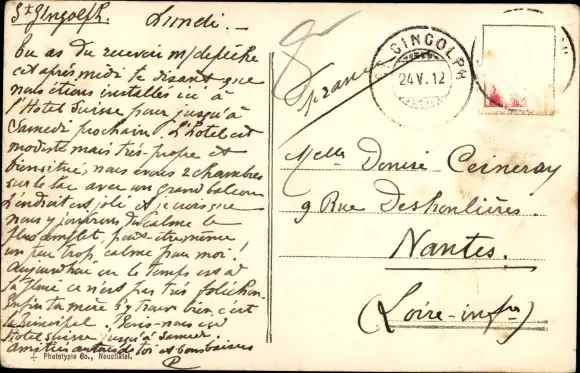 St Gingolph. Lundi. —
Tu as dû recevoir m/ dépêche
cet après midi te disant que
nous étions installés ici à
l'Hotel Suisse pour jusqu'à
Samedi prochain. L'hotel est
modeste mais très propre et
bien situé, nous avons 2 chambres
sur le lac avec un grand balcon
L'endroit est joli et je crois que
nous y jouirons du calme le
plus complet, peut être même
un peu trop calme pour moi!
Aujourd'hui le temps est à
la pluie ce n'est pas très folichon.
Enfin ta mère s'y trouve bien, c'est
le principal. Ecris-nous ici
Hotel Suisse jusqu'à Samedi
Amitiés autour de toi et bons baisers
Phototypie Co., Neuchâtel.
ST GINGOLPH
24.V.12
France
Melle Denise Ceineray
9 Rue Deshoulières.
Nantes.
(Loire-infre)